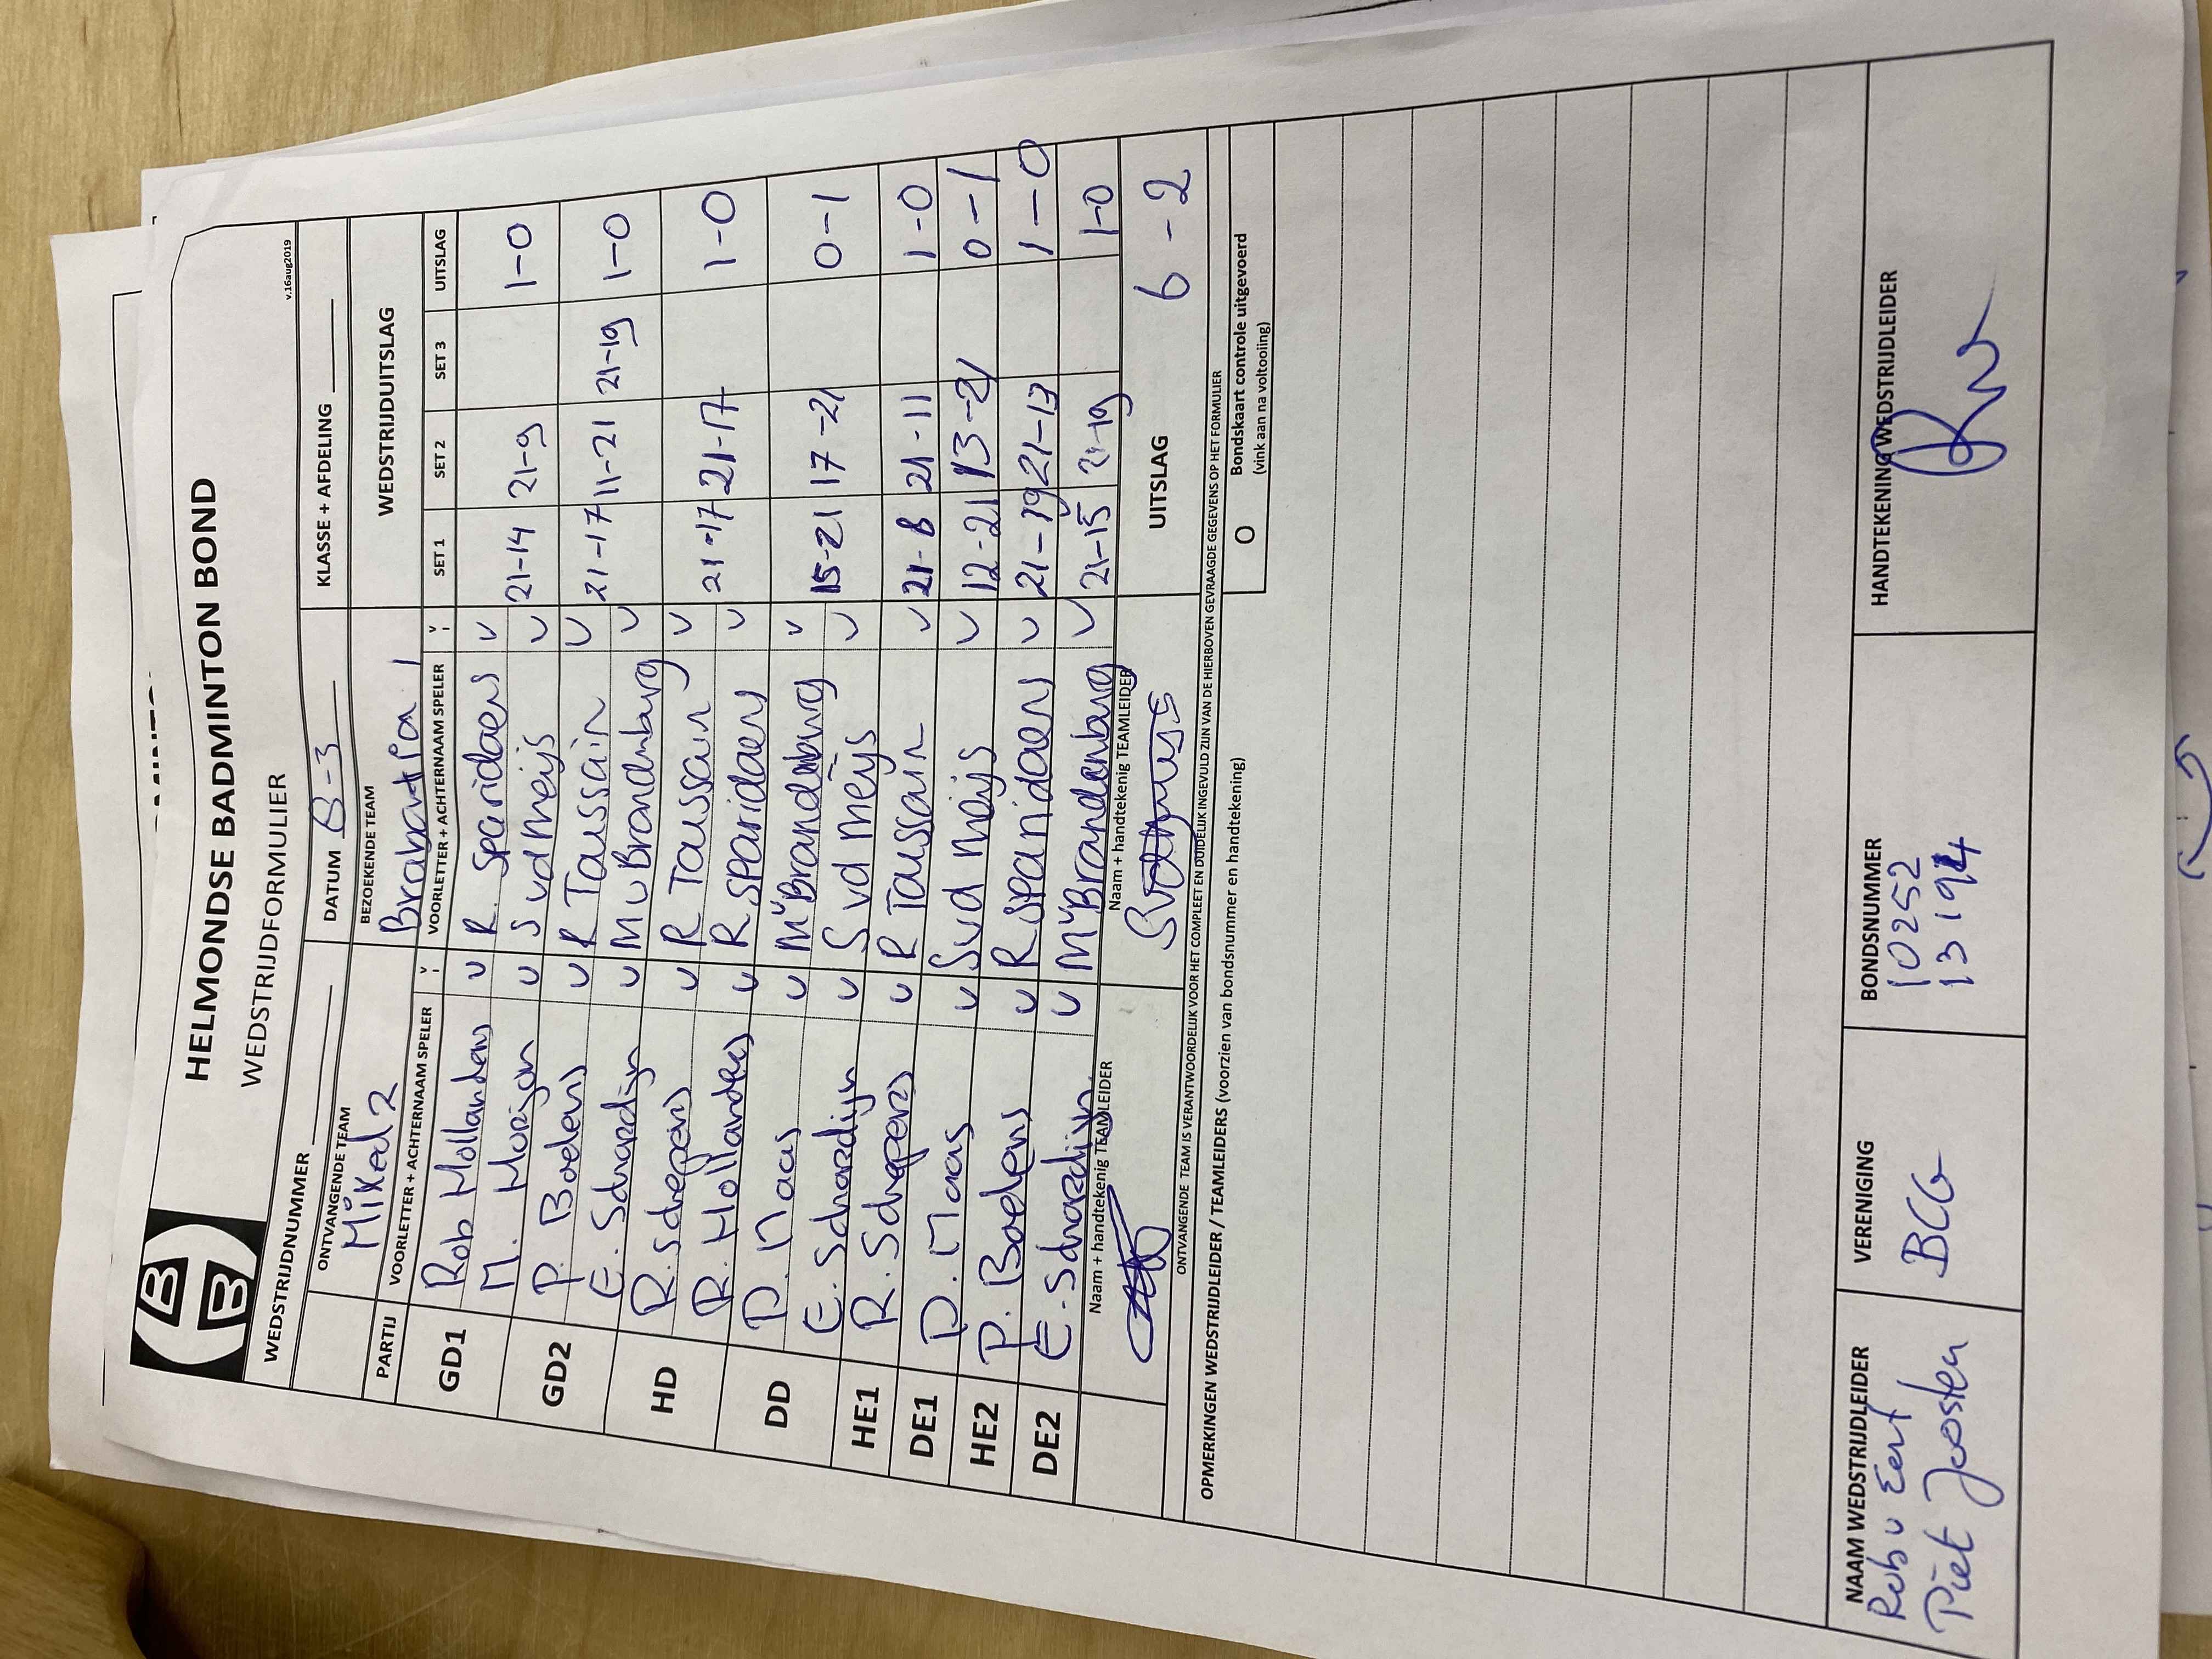 HELMONDSE BADMINTON BOND
WEDSTRIJDFORMULIER
v.16aug2019
WEDSTRIJDNUMMER DATUM 8-3 KLASSE + AFDELING
ONTVANGENDE TEAM BEZOEKENDE TEAM WEDSTRIJDUITSLAG
Mixed 2 Brabantia 1
PARTIJ VOORLETTER + ACHTERNAAM SPELER V VOORLETTER + ACHTERNAAM SPELER V SET 1 SET 2 SET 3 UITSLAG
GD1 Rob Hollanders v R. Sparidaens v
M. Horijon v S vd Meijs v 21-14 21-9 1-0
GD2 P. Boelens v R Taussain v
E. Schrardijn v M v Brandenburg v 21-17 11-21 21-19 1-0
HD R. Schepens v R Taussain v
R. Hollanders v R Sparidaens v 21-17 21-17 1-0
DD D. Maas v M v Brandenburg v
E. Schrardijn v S vd Meijs v 15-21 17-21 0-1
HE1 R. Schepens v R Taussain v 21-8 21-11 1-0
DE1 D. Maas v S vd Meijs v 12-21 13-21 0-1
HE2 P. Boelens v R Sparidaens v 21-19 21-13 1-0
DE2 E. Schrardijn v M v Brandenburg v 21-15 21-19 1-0
Naam + handtekenig TEAMLEIDER Naam + handtekenig TEAMLEIDER UITSLAG 6-2
ONTVANGENDE TEAM IS VERANTWOORDELIJK VOOR HET COMPLEET EN DUIDELIJK INGEVULD ZIJN VAN DE HIERBOVEN GEVRAAGDE GEGEVENS OP HET FORMULIER
OPMERKINGEN WEDSTRIJDLEIDER / TEAMLEIDERS (voorzien van bondsnummer en handtekening) O Bondskaart controle uitgevoerd
(vink aan na voltooling)
NAAM WEDSTRIJDLEIDER VERENIGING BONDSNUMMER HANDTEKENING WEDSTRIJDLEIDER
Rob v Eert BCG 10252
Piet Joosten 13194